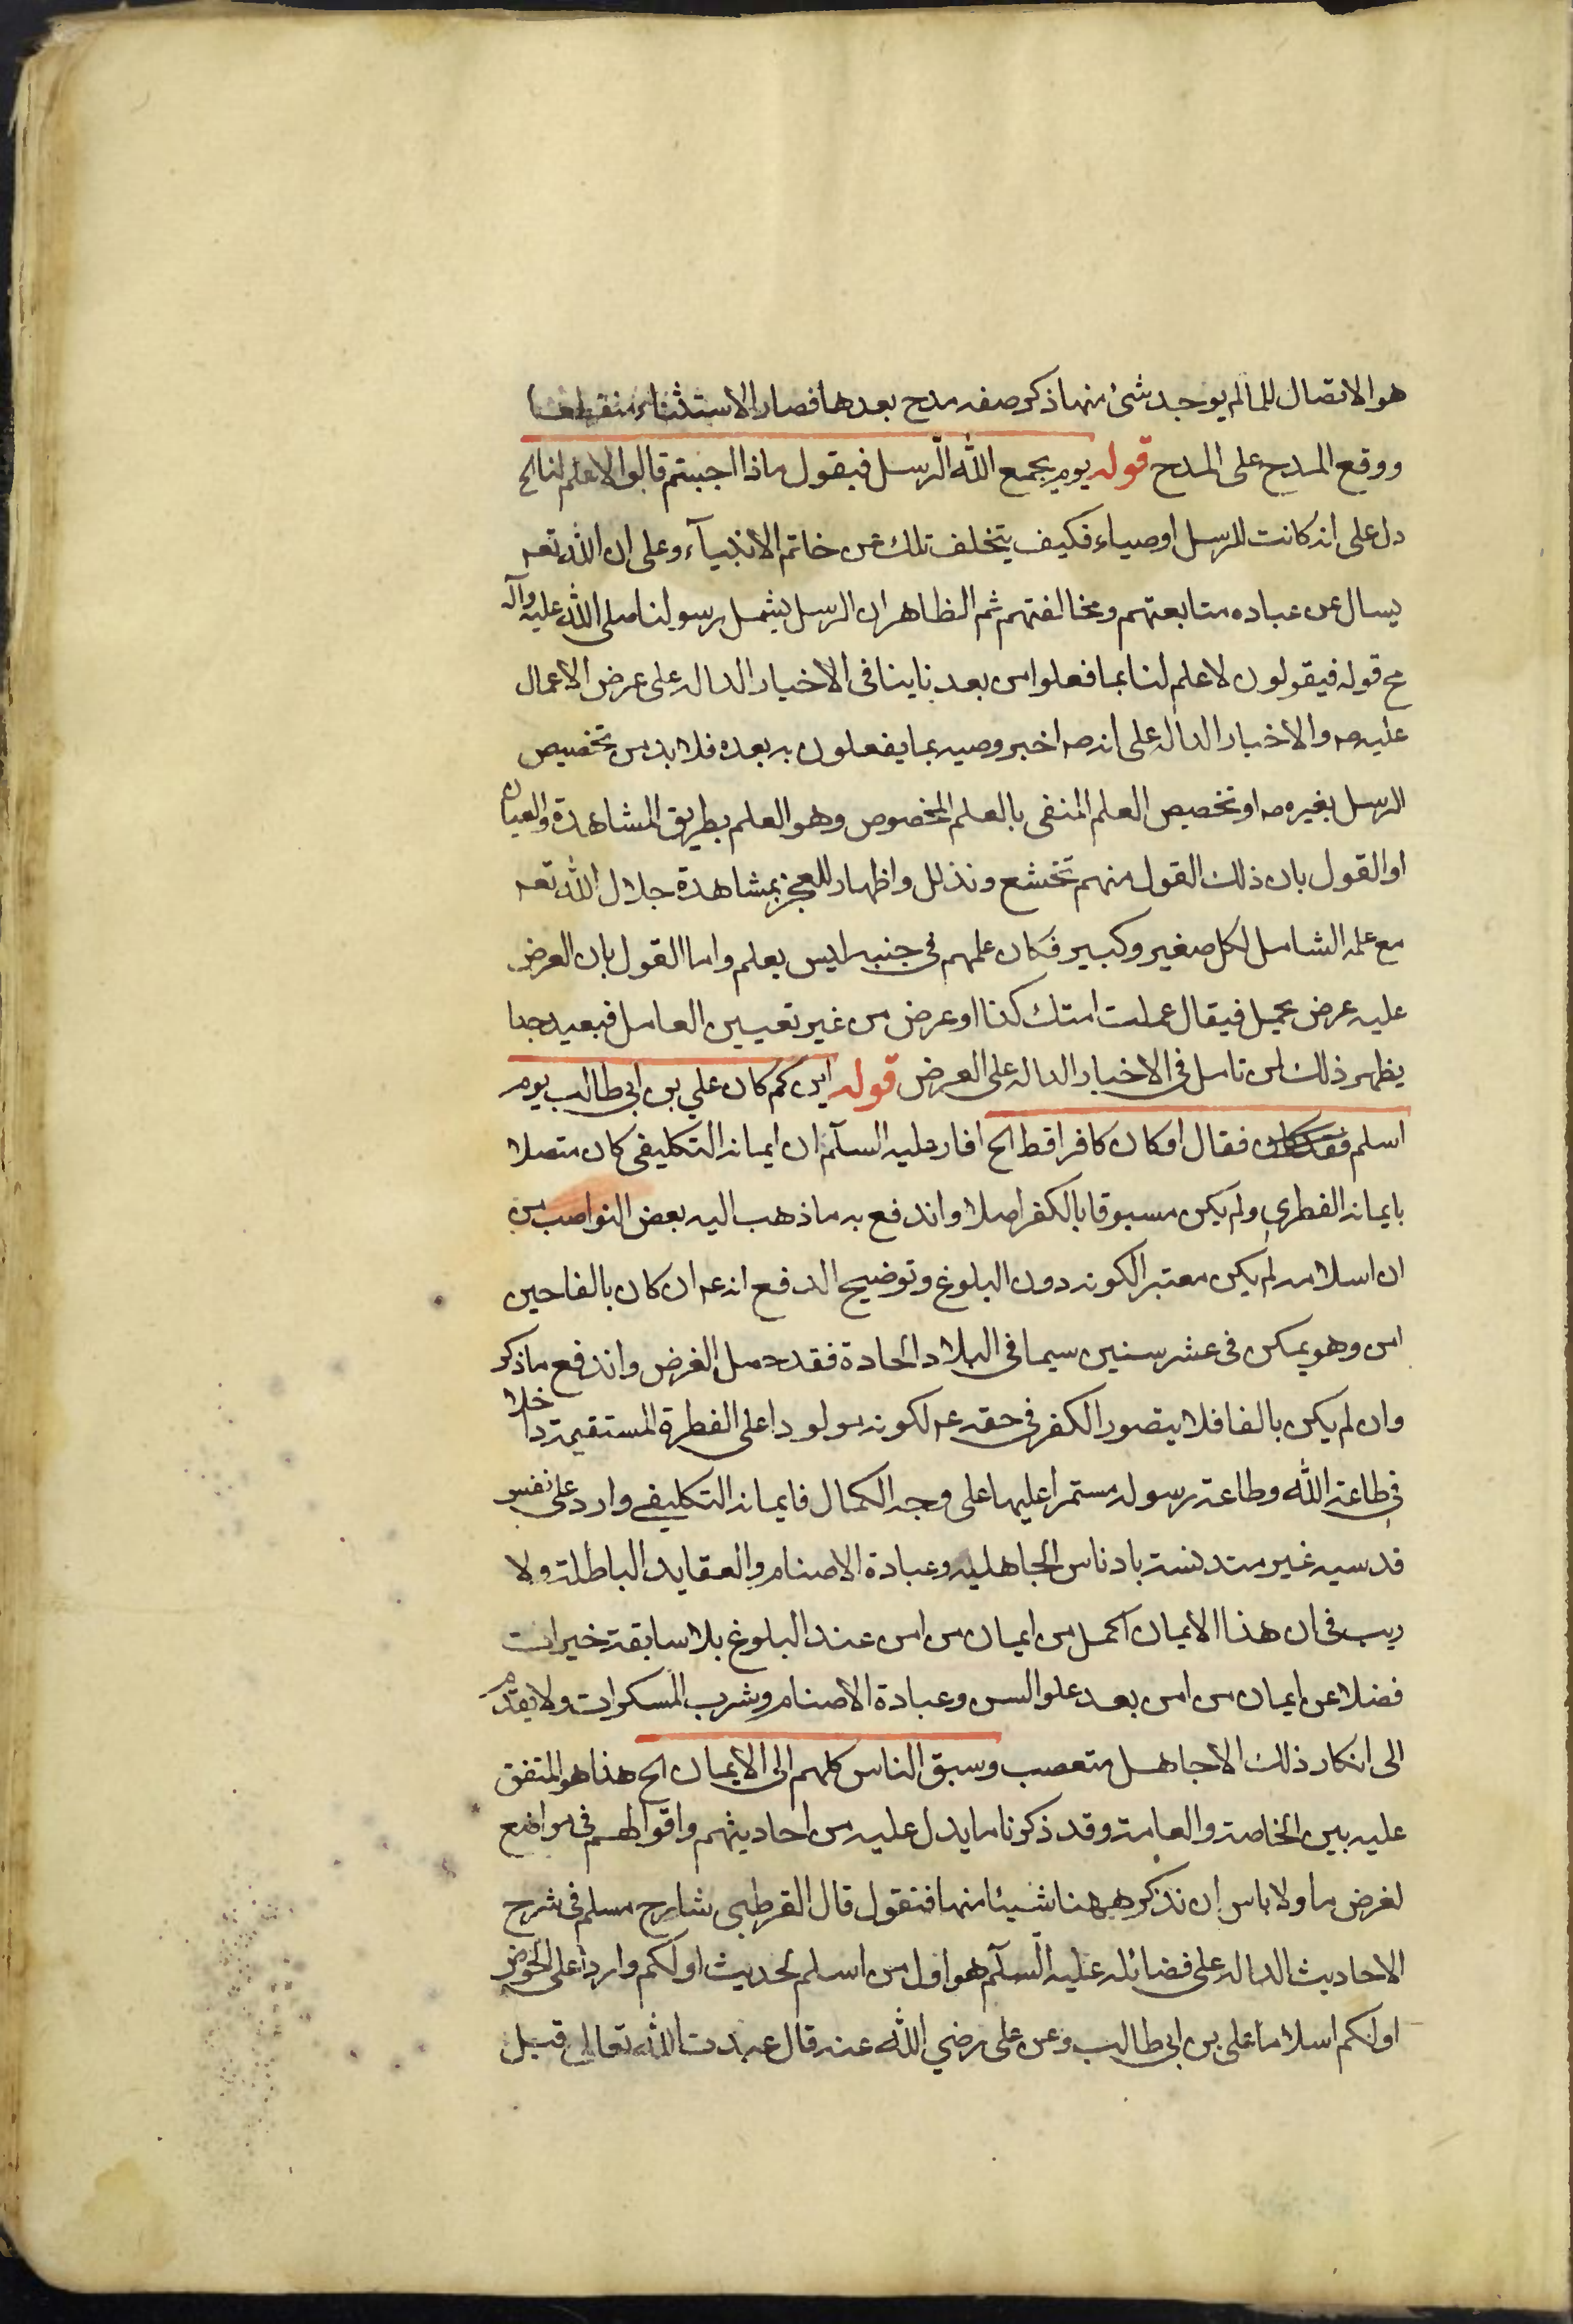 هو الاتصال للما لم يوجد شئ منها ذكر صفه مدح بعدها فصار الاستثناء منقطعا
ووقع المدح على المدح قوله يوم يجمع الله الرسل فيقول ماذا اجبتم قالوا لا علم لنا الخ
دل على انه كانت للرسل اوصياء فكيف يتخلف تلك عن خاتم الانبيآء وعلى ان الله تعه
يسال عن عباده متابعتهم ومخالفتهم ثم الظاهر ان الرسل يشمل رسولنا صلى الله عليه وآله
مح قوله فيقولون لا علم لنا بما فعلوا من بعدنا ينافى الاخبار الداله على عرض الاعمال
عليه صه والاخبار الداله على انه صه اخبر وصيه بما يفعلون به بعده فلا بد من تخصيص
الرسل بغيره صه او تخصيص العلم المنفى بالعلم المخصوص وهو العلم بطريق المشاهدة والعيان
او القول بان ذلك القول منهم تخشع وتذلل واظهار للعجز بمشاهدة جلال الله تعه
مع علمه الشامل لكل صغير وكبير فكان علمهم فى جنبه ليس بعلم واما القول بان العرض
عليه عرض مجمل فيقال عملت امتك كذا او عرض من غير تعيين العامل فبعيد جدا
يظهر ذلك لمن تامل فى الاخبار الداله على العرض قوله ابن كم كان علي بن ابي طالب يوم
اسلم فقال او كان كافرا قط الخ افاد عليه السلآم ان ايمانه التكليفى كان متصلا
بايمانه الفطري ولم يكن مسبوقا بالكفر اصلا واندفع به ما ذهب اليه بعض النواصب من
ان اسلامه لم يكن معتبرا لكونه دون البلوغ وتوضيح الدفع انه عه ان كان بالغا حين
امن وهو يمكن فى عشر سنين سيما فى البلاد الحادة فقد حصل الغرض واندفع ما ذكر
وان لم يكن بالغا فلا يتصور الكفر فى حقه عه لكونه مولودا على الفطرة المستقيمة داخلا
فى طاعة الله وطاعة رسوله مستمرا عليها على وجه الكمال فايمانه التكليفى وارد على نفس
قدسيه غير متدنسة بادناس الجاهليه وعبادة الاصنام والعقايد الباطلة ولا
ريب فى ان هذا الايمان اكمل من ايمان من امن عند البلوغ بلا سابقة خيرات
فضلا عن ايمان من امن بعد علو السن وعبادة الاصنام وشرب المسكرات ولا يقدم
الى انكار ذلك الا جاهل متعصب وسبق الناس كلهم الى الايمان الخ هذا هو المتفق
عليه بين الخاصة والعامة وقد ذكرنا ما يدل عليه من احاديثهم واقوالهم فى مواضع
لغرض ما ولا باس ان نذكر ههنا شيئا منها فنقول قال القرطبى شارح مسلم فى شرح
الاحاديث الداله على فضائله عليه السلآم هو اول من اسلم لحديث اولكم واردا على الحوض
اولكم اسلاما على بن ابى طالب وعن على رضي الله عنه قال عبدت الله تعالى قبل